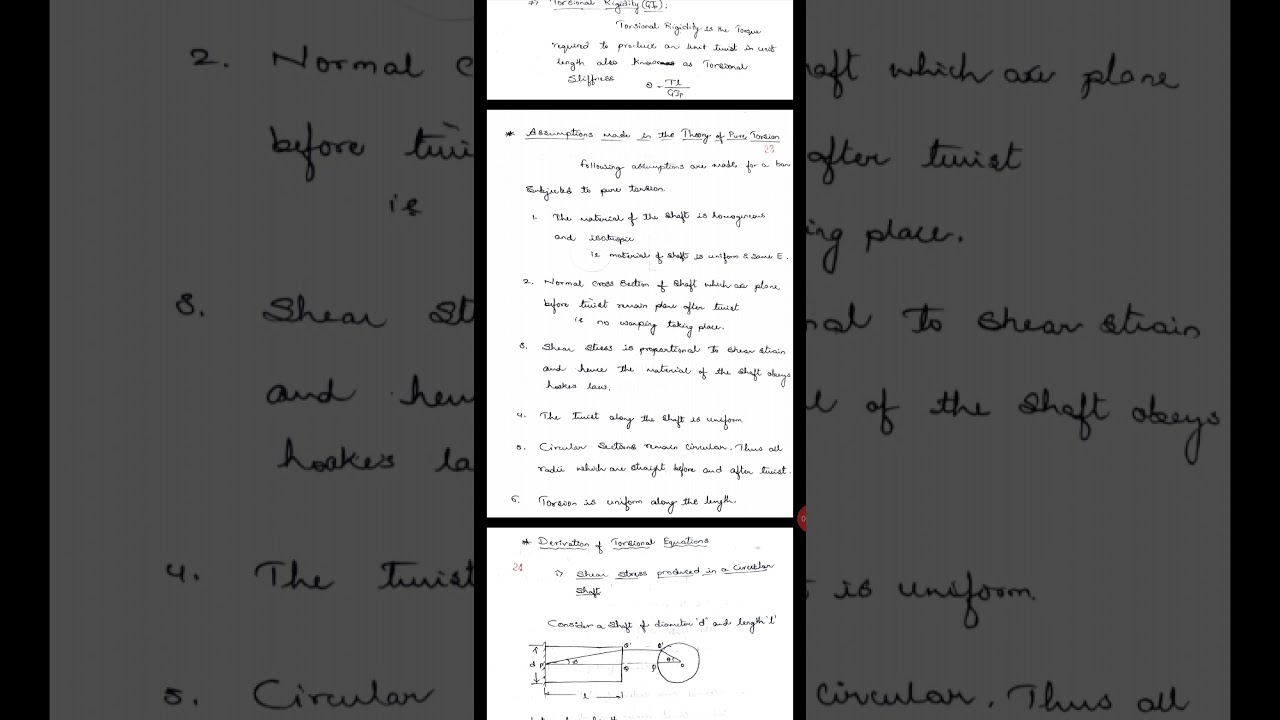 7) Torsional Rigidity (GIp) :
Torsional Rigidity is the Torque
required to produce an unit twist in unit
length also known as Torsional
Stiffness
θ = Tl / GIp
* Assumptions made in the Theory of Pure Torsion
23
Following assumptions are made for a bar
Subjected to pure torsion.
1. The material of the shaft is homogeneous
and isotropic
ie material of shaft is uniform & same E.
2. Normal cross section of shaft which are plane
before twist remain plane after twist
ie no warping taking place.
3. Shear stress is proportional to shear strain
and hence the material of the shaft obeys
hookes law.
4. The twist along the shaft is uniform
5. Circular sections remain circular. Thus all
radii which are straight before and after twist.
6. Torsion is uniform along the length.
* Derivation of Torsional Equations
24
i) Shear stress produced in a circular
shaft
Consider a shaft of diameter 'd' and length 'l'
d
l
2. Normal c
before twi
ie
3. Shear st
and hen
hookes la
4. The twist
5. Circular
aft which are plane
after twist
ing place.
nal to shear strain
l of the shaft obeys
is uniform.
circular. Thus all